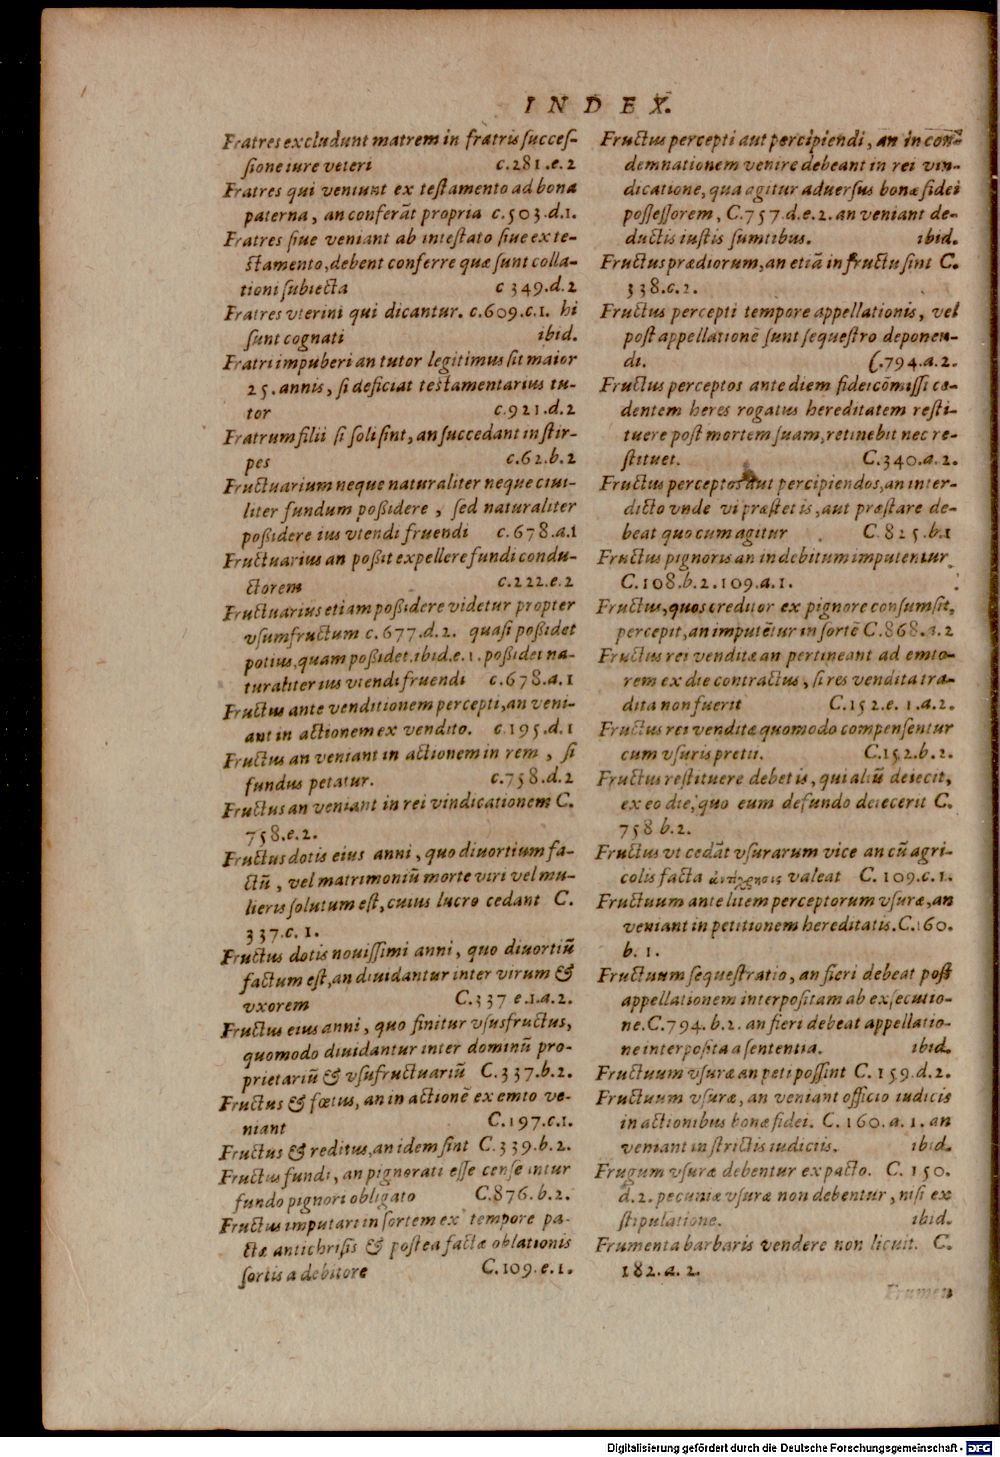 INDEX.
Fratres excludunt matrem in fratris succes-
sione iure veteri c.281.e.2
Fratres qui veniunt ex testamento ad bona
paterna, an conferāt propria c.503.d.1.
Fratres siue veniant ab intestato siue ex te-
stamento, debent conferre quæ sunt colla-
tioni subiecta c 349.d.2
Fratres vterini qui dicantur. c.609.c.1. hi
sunt cognati ibid.
Fratri impuberi an tutor legitimus sit maior
25. annis, si deficiat testamentarius tu-
tor c.921.d.2
Fratrum filii si soli sint, an succedant in stir-
pes c.62.b.2
Fructuarium neque naturaliter neque ciui-
liter fundum poßidere, sed naturaliter
poßidere ius vtendi fruendi c.678.a.1
Fructuarius an poßit expellere fundi condu-
ctorem c.222.e.2
Fructuarius etiam poßidere videtur propter
vsumfructum c.677.d.2. quasi poßidet
potius, quam poßidet. ibid.e.1. poßidet na-
turaliter ius vtendi fruendi c.678.a.1
Fructus ante venditionem percepti, an veni-
ant in actionem ex vendito. c.195.d.1
Fructus an veniant in actionem in rem, si
fundus petatur. c.758.d.2
Fructus an veniant in rei vindicationem C.
758.e.2.
Fructus dotis eius anni, quo diuortium fa-
ctū, vel matrimoniū morte viri vel mu-
lieris solutum est, cuius lucro cedant C.
337.c.1.
Fructus dotis nouissimi anni, quo diuortiū
factum est, an diuidantur inter virum &
vxorem C.337 e.1.a.2.
Fructus eius anni, quo finitur vsusfructus,
quomodo diuidantur inter dominū pro-
prietariū & vsufructuariū C.337.b.2.
Fructus & fœtus, an in actionē ex emto ve-
niant C.197.c.1.
Fructus & reditus, an idem sint C.339.b.2.
Fructus fundi, an pignorati esse censeantur
fundo pignori obligato C.876.b.2.
Fructus imputari in sortem ex tempore pa-
ctæ antichrisis & postea factæ oblationis
sortis a debitore C.109.e.1.
Fructus percepti aut percipiendi, an in con-
demnationem venire debeant in rei vin-
dicatione, qua agitur aduersus bonæ fidei
possessorem, C.757.d.e.2. an veniant de-
ductis iustis sumtibus. ibid.
Fructus prædiorum, an etiā in fructu sint C.
338.c.2.
Fructus percepti tempore appellationis, vel
post appellationē sunt sequestro deponen-
di. C.794.a.2.
Fructus perceptos ante diem fideicōmissi ce-
dentem heres rogatus hereditatem resti-
tuere post mortem suam, retinebit nec re-
stituet. C.340.a.2.
Fructus perceptos aut percipiendos, an inter-
dicto vnde vi præstet is, aut præstare de-
beat quo cum agitur C.825.b.1
Fructus pignoris an in debitum imputentur
C.108.b.2.109.a.1.
Fructus, quos creditor ex pignore consumsit,
percepit, an imputētur in sortē C.868.a.2
Fructus rei venditæ an pertineant ad emto-
rem ex die contractus, si res vendita tra-
dita non fuerit C.152.e.1.a.2.
Fructus rei venditæ quomodo compensentur
cum vsuris pretii. C.152.b.2.
Fructus restituere debet is, qui aliū deiecit,
ex eo die, quo eum de fundo deiecerit C.
758 b.2.
Fructus vt cedāt vsurarum vice an cū agri-
colis facta ἀντίχρησις valeat C.109.c.1.
Fructuum ante litem perceptorum vsuræ, an
veniant in petitionem hereditatis. C.160.
b.1.
Fructuum sequestratio, an fieri debeat post
appellationem interpositam ab exsecutio-
ne. C.794.b.2. an fieri debeat appellatio-
ne interposita a sententia. ibid.
Fructuum vsuræ an peti possint C.159.d.2.
Fructuum vsuræ, an veniant officio iudicis
in actionibus bonæ fidei. C.160.a.1. an
veniant in strictis iudiciis. ibid.
Frugum vsuræ debentur ex pacto. C.150.
d.2. pecuniæ vsuræ non debentur, nisi ex
stipulatione. ibid.
Frumenta barbaris vendere non licuit. C.
182.a.2.
Frumen
Digitalisierung gefördert durch die Deutsche Forschungsgemeinschaft - DFG